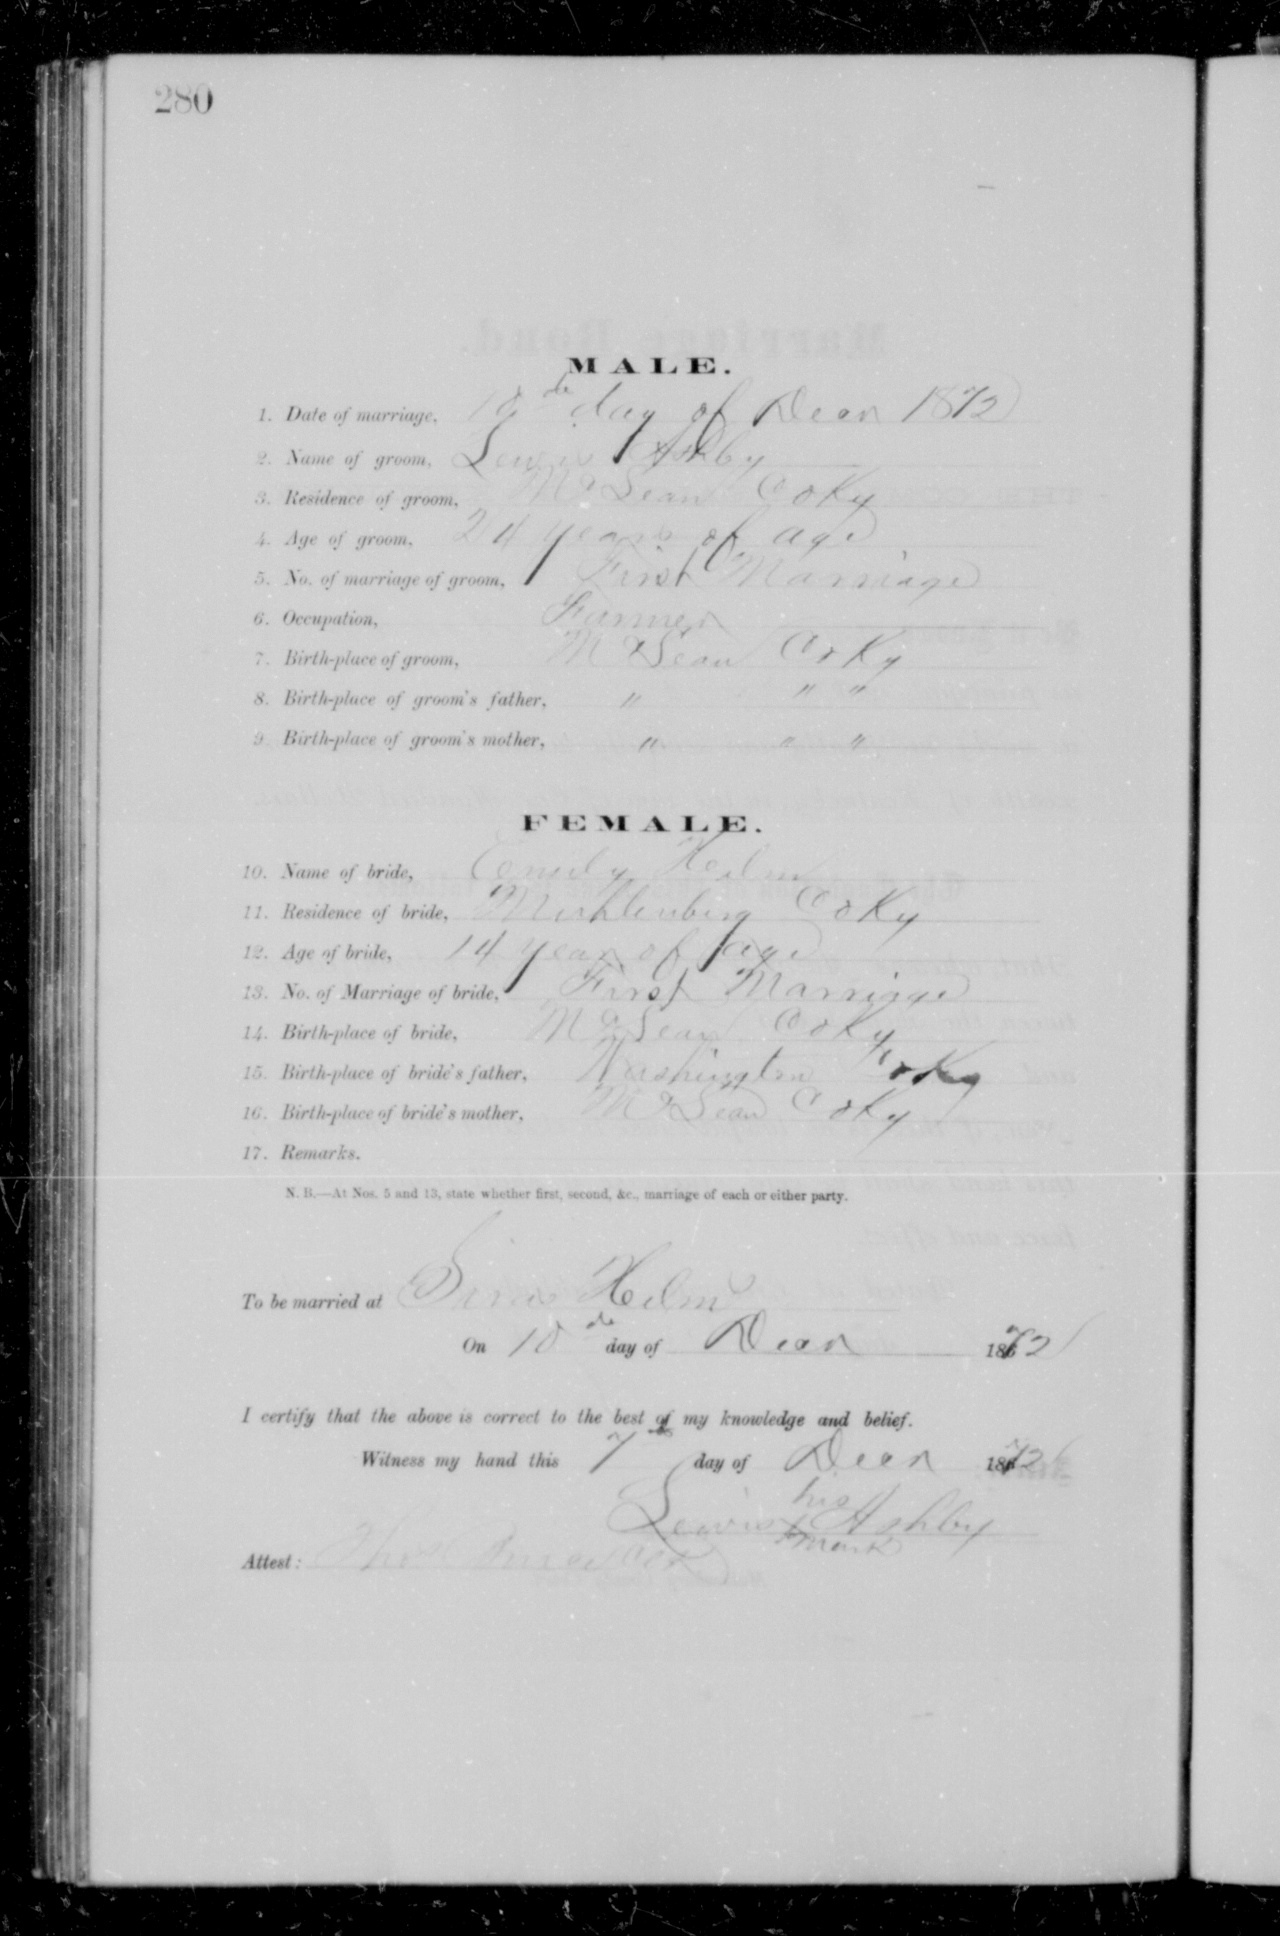 280
MALE.
1. Date of marriage, 10th day of Decr 1872
2. Name of groom, Lewis Ashby
3. Residence of groom, McLean Co Ky
4. Age of groom, 24 years of age
5. No. of marriage of groom, First Marriage
6. Occupation, Farmer
7. Birth-place of groom, McLean Co Ky
8. Birth-place of groom's father, " " "
9. Birth-place of groom's mother, " " "
FEMALE.
10. Name of bride, Emily Helm
11. Residence of bride, Muhlenberg Co Ky
12. Age of bride, 14 year of age
13. No. of Marriage of bride, First Marriage
14. Birth-place of bride, McLean Co Ky
15. Birth-place of bride's father, Washington Co Ky
16. Birth-place of bride's mother, McLean Co Ky
17. Remarks.
N. B.—At Nos. 5 and 13, state whether first, second, &c., marriage of each or either party.
To be married at Helm
On 10th day of Decr 1872
I certify that the above is correct to the best of my knowledge and belief.
Witness my hand this 7th day of Decr 1872
his
Lewis x Ashby
mark
Attest: Thos